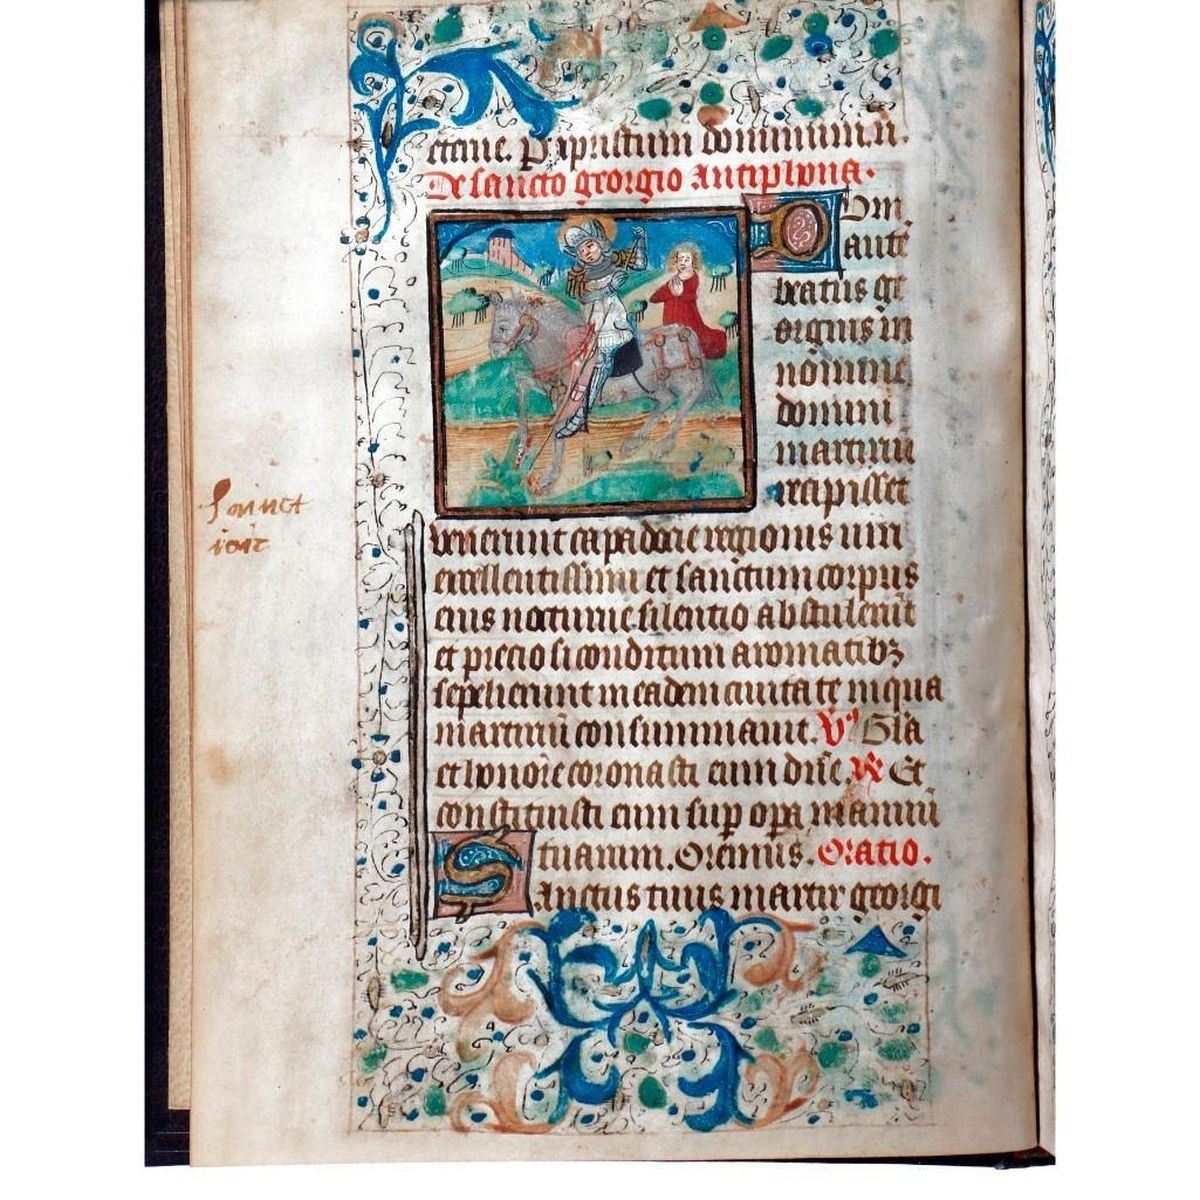 ettine. P xpristum dominum.n̄.
De sancto georgio antiphona.
Dum
autē
beatus ge
orgius in
nomine
domini
martiriū
recipisset
venerunt capadocie regionis viri
excellentissimi et sanctum corpus
eius nocturne silentio abstulerūt
et precio si conditum aromatibꝫ
sepelierunt in eadem ciuitate in qua
martiriū consummauit. V Gl̄a
et honore coronasti eum dn̄e. R Et
constituisti eum sup opa manuū
tuarum. Oremus. Oratio.
Sanctus tuus martir georgi
Sainct